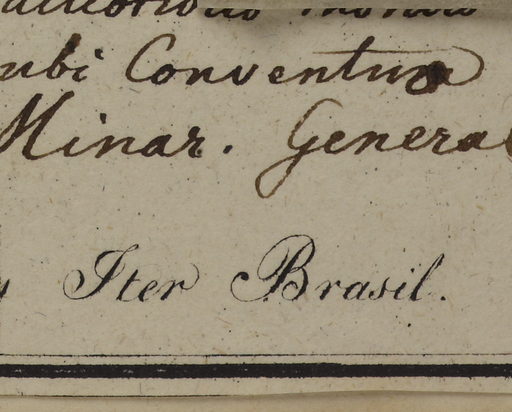 ubi Conventus
Minar. General
Iter Brasil.